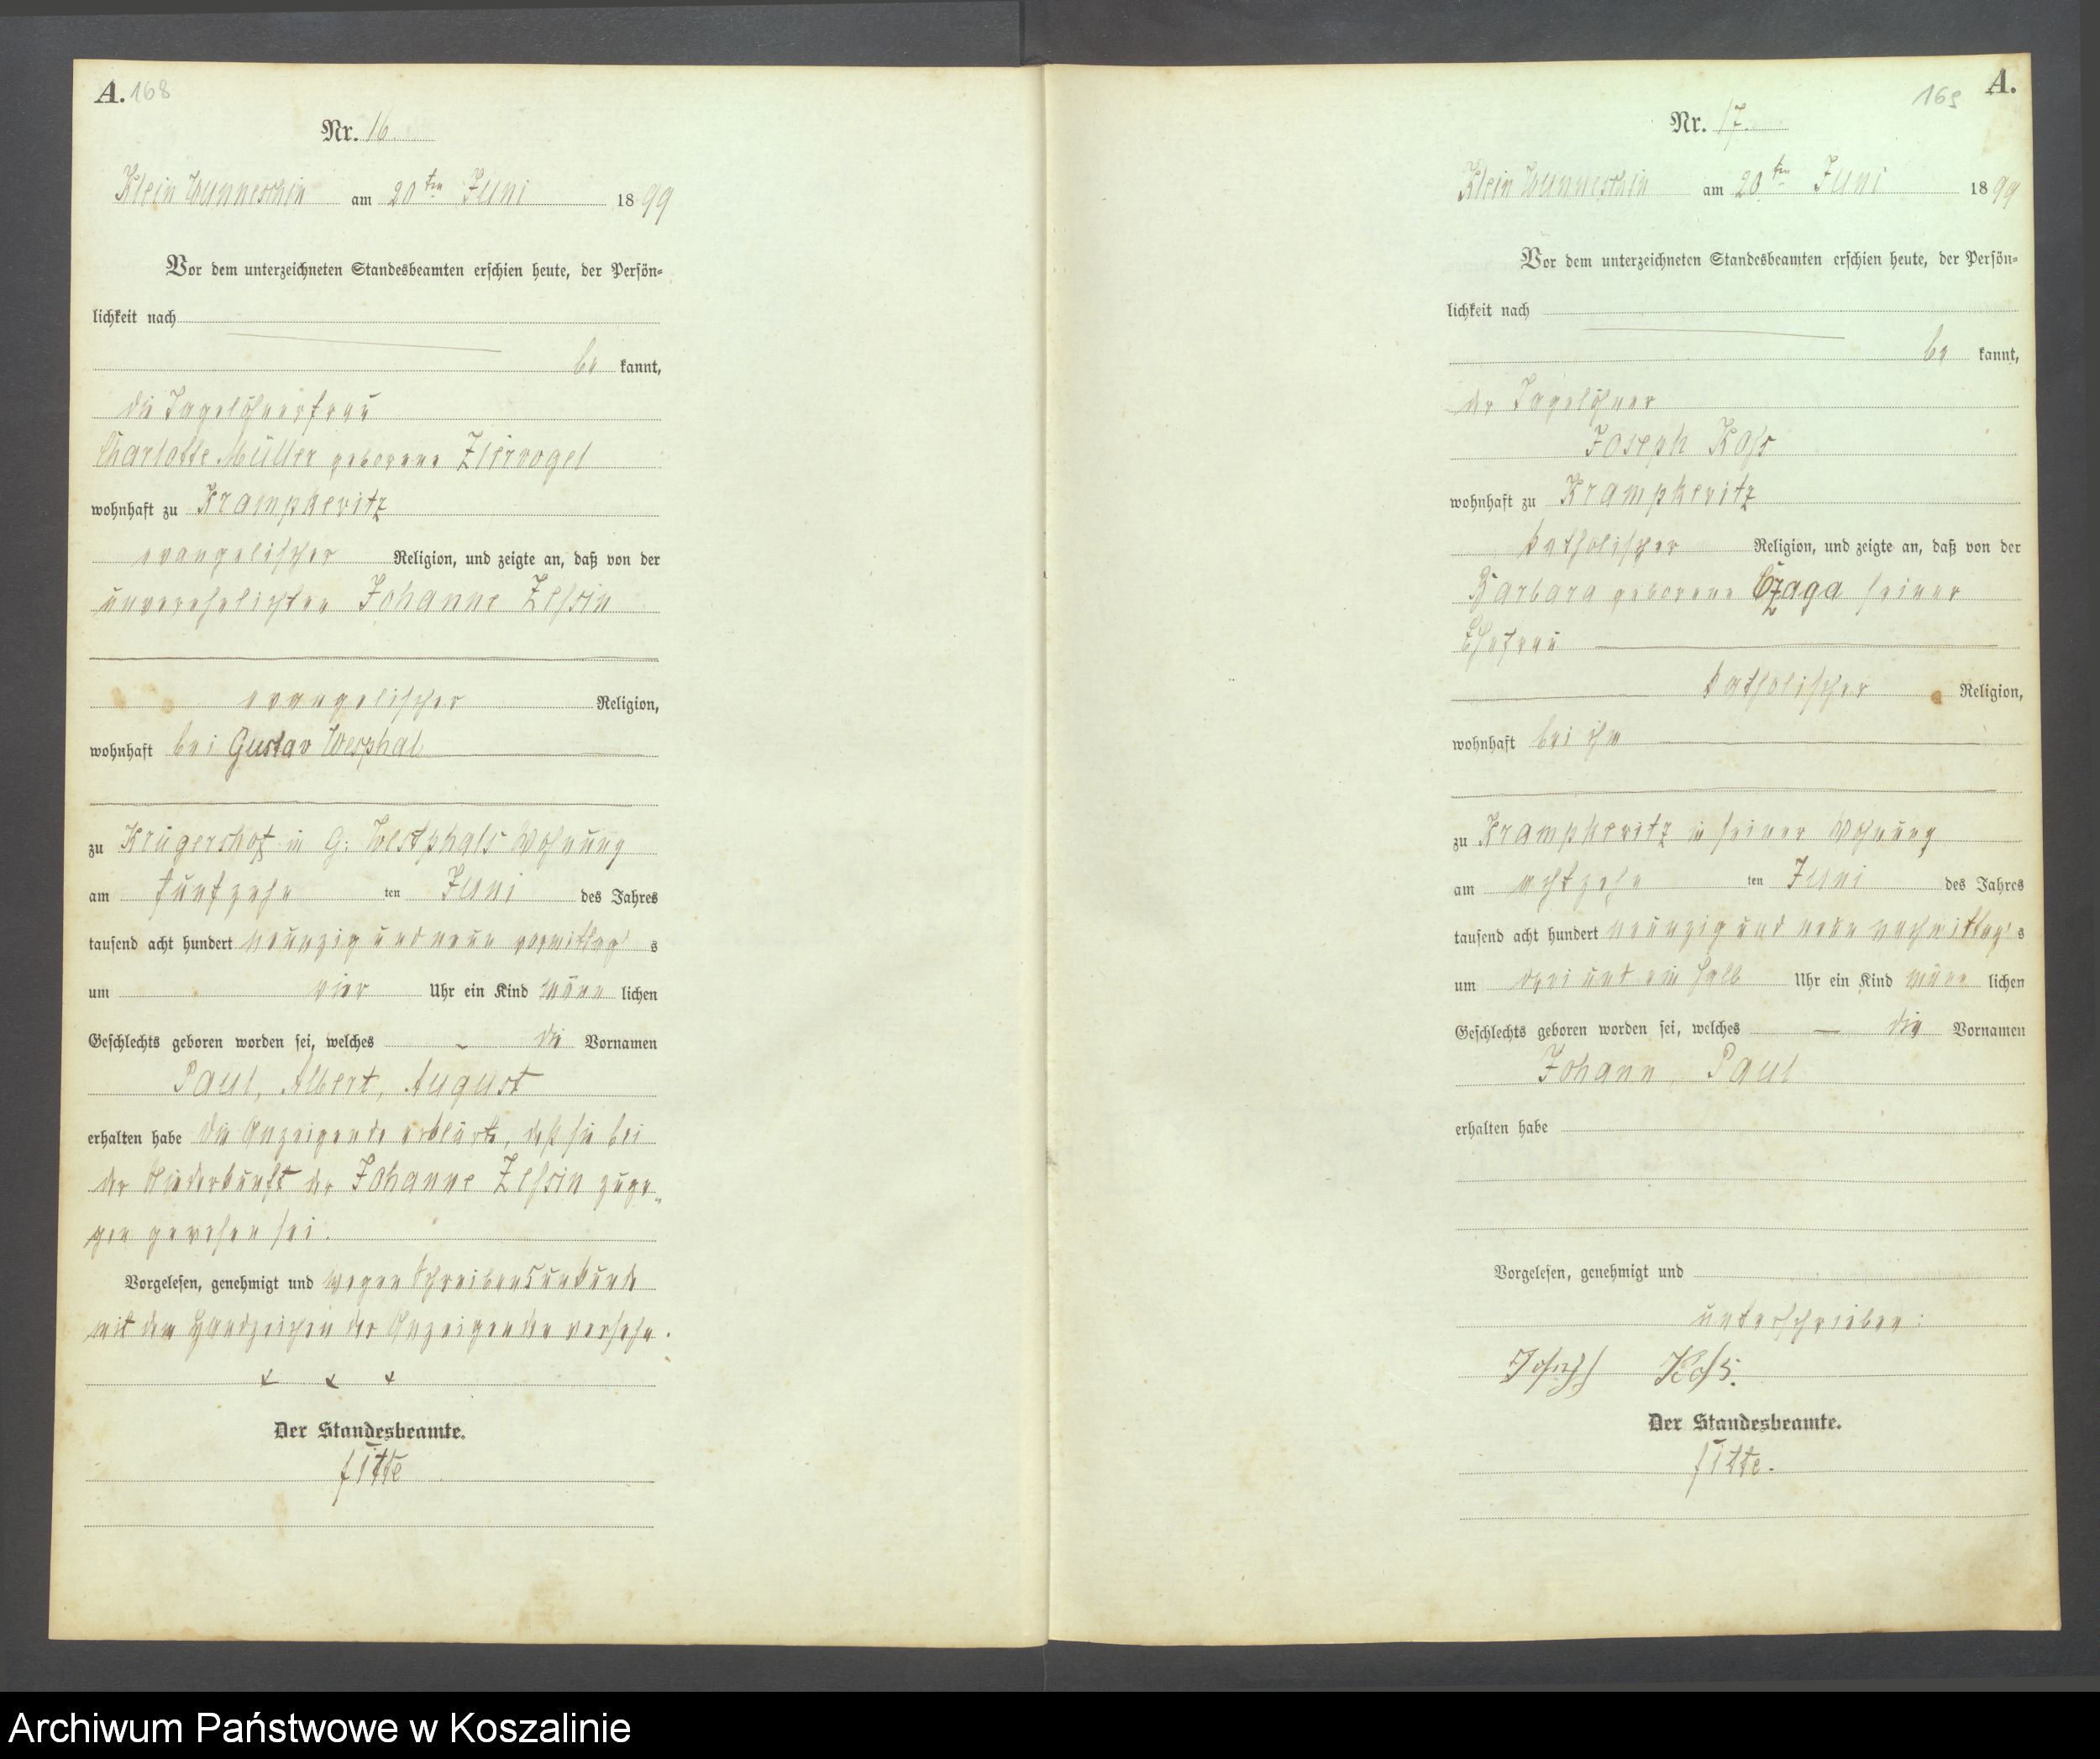 A. 168
Nr. 16
Klein Wunneschin am 20ten Juni 1899
Vor dem unterzeichneten Standesbeamten erschien heute, der Persön-
lichkeit nach
be kannt,
die Tagelöhnerfrau
Charlotte Müller geborene Ziervogel
wohnhaft zu Krampkewitz
evangelischer Religion, und zeigte an, daß von der
unverehelichten Johanne Zessin
evangelischer Religion,
wohnhaft bei Gustav Wesphal
zu Krügershof in G. Westphals Wohnung
am fünfzehn ten Juni des Jahres
tausend acht hundert neunzig und neun vormittag s
um vier Uhr ein Kind männ lichen
Geschlechts geboren worden sei, welches die Vornamen
Paul, Albert, August
erhalten habe Die Anzeigende erklärte, daß sie bei
der Niederkunft der Johanne Zessin zuge„
gen gewesen sei.
Vorgelesen, genehmigt und wegen Schreibensunkunde
mit dem Handzeichen der Anzeigenden versehn.
x x x
Der Standesbeamte.
Fitte
169 A.
Nr. 17.
Klein Wunneschin am 20ten Juni 1899
Vor dem unterzeichneten Standesbeamten erschien heute, der Persön-
lichkeit nach
be kannt,
der Tagelöhner
Joseph Koss
wohnhaft zu Krampkewitz
katholischer Religion, und zeigte an, daß von der
Barbara geborene Czaga seiner
Ehefrau
katholischer Religion,
wohnhaft bei ihm
zu Krampkewitz in seiner Wohnung
am achtzehn ten Juni des Jahres
tausend acht hundert neunzig und neun nachmittag s
um drei und ein halb Uhr ein Kind männ lichen
Geschlechts geboren worden sei, welches — die Vornamen
Johann, Paul
erhalten habe
Vorgelesen, genehmigt und
unterschrieben:
Joseph Koss.
Der Standesbeamte.
Fitte.
Archiwum Państwowe w Koszalinie